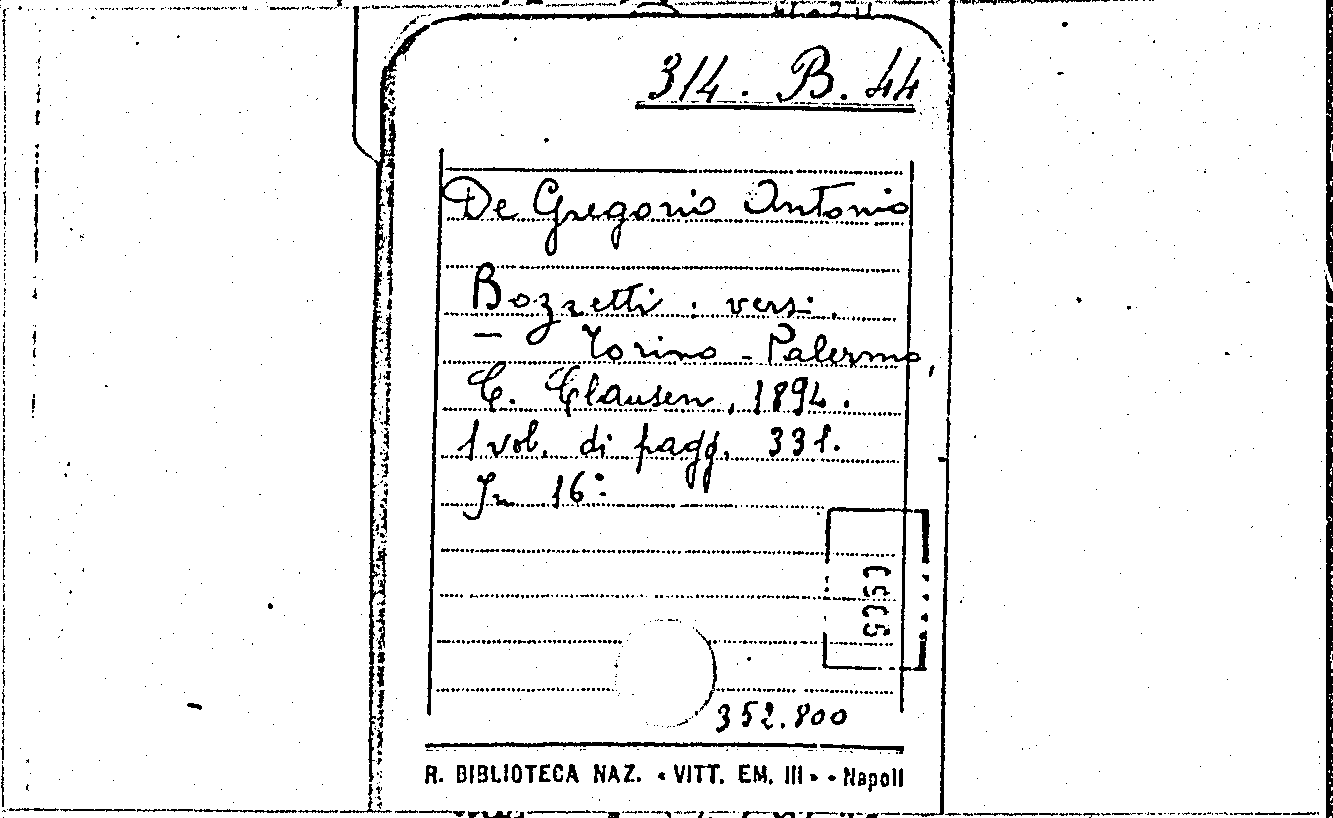 314. B. 44
De Gregorio Antonio
Bozzetti : versi.
— Torino - Palermo,
C. Clausen, 1894.
1 vol. di pagg. 331.
In 16°.
352.800
R. BIBLIOTECA NAZ. « VITT. EM. III » - Napoli